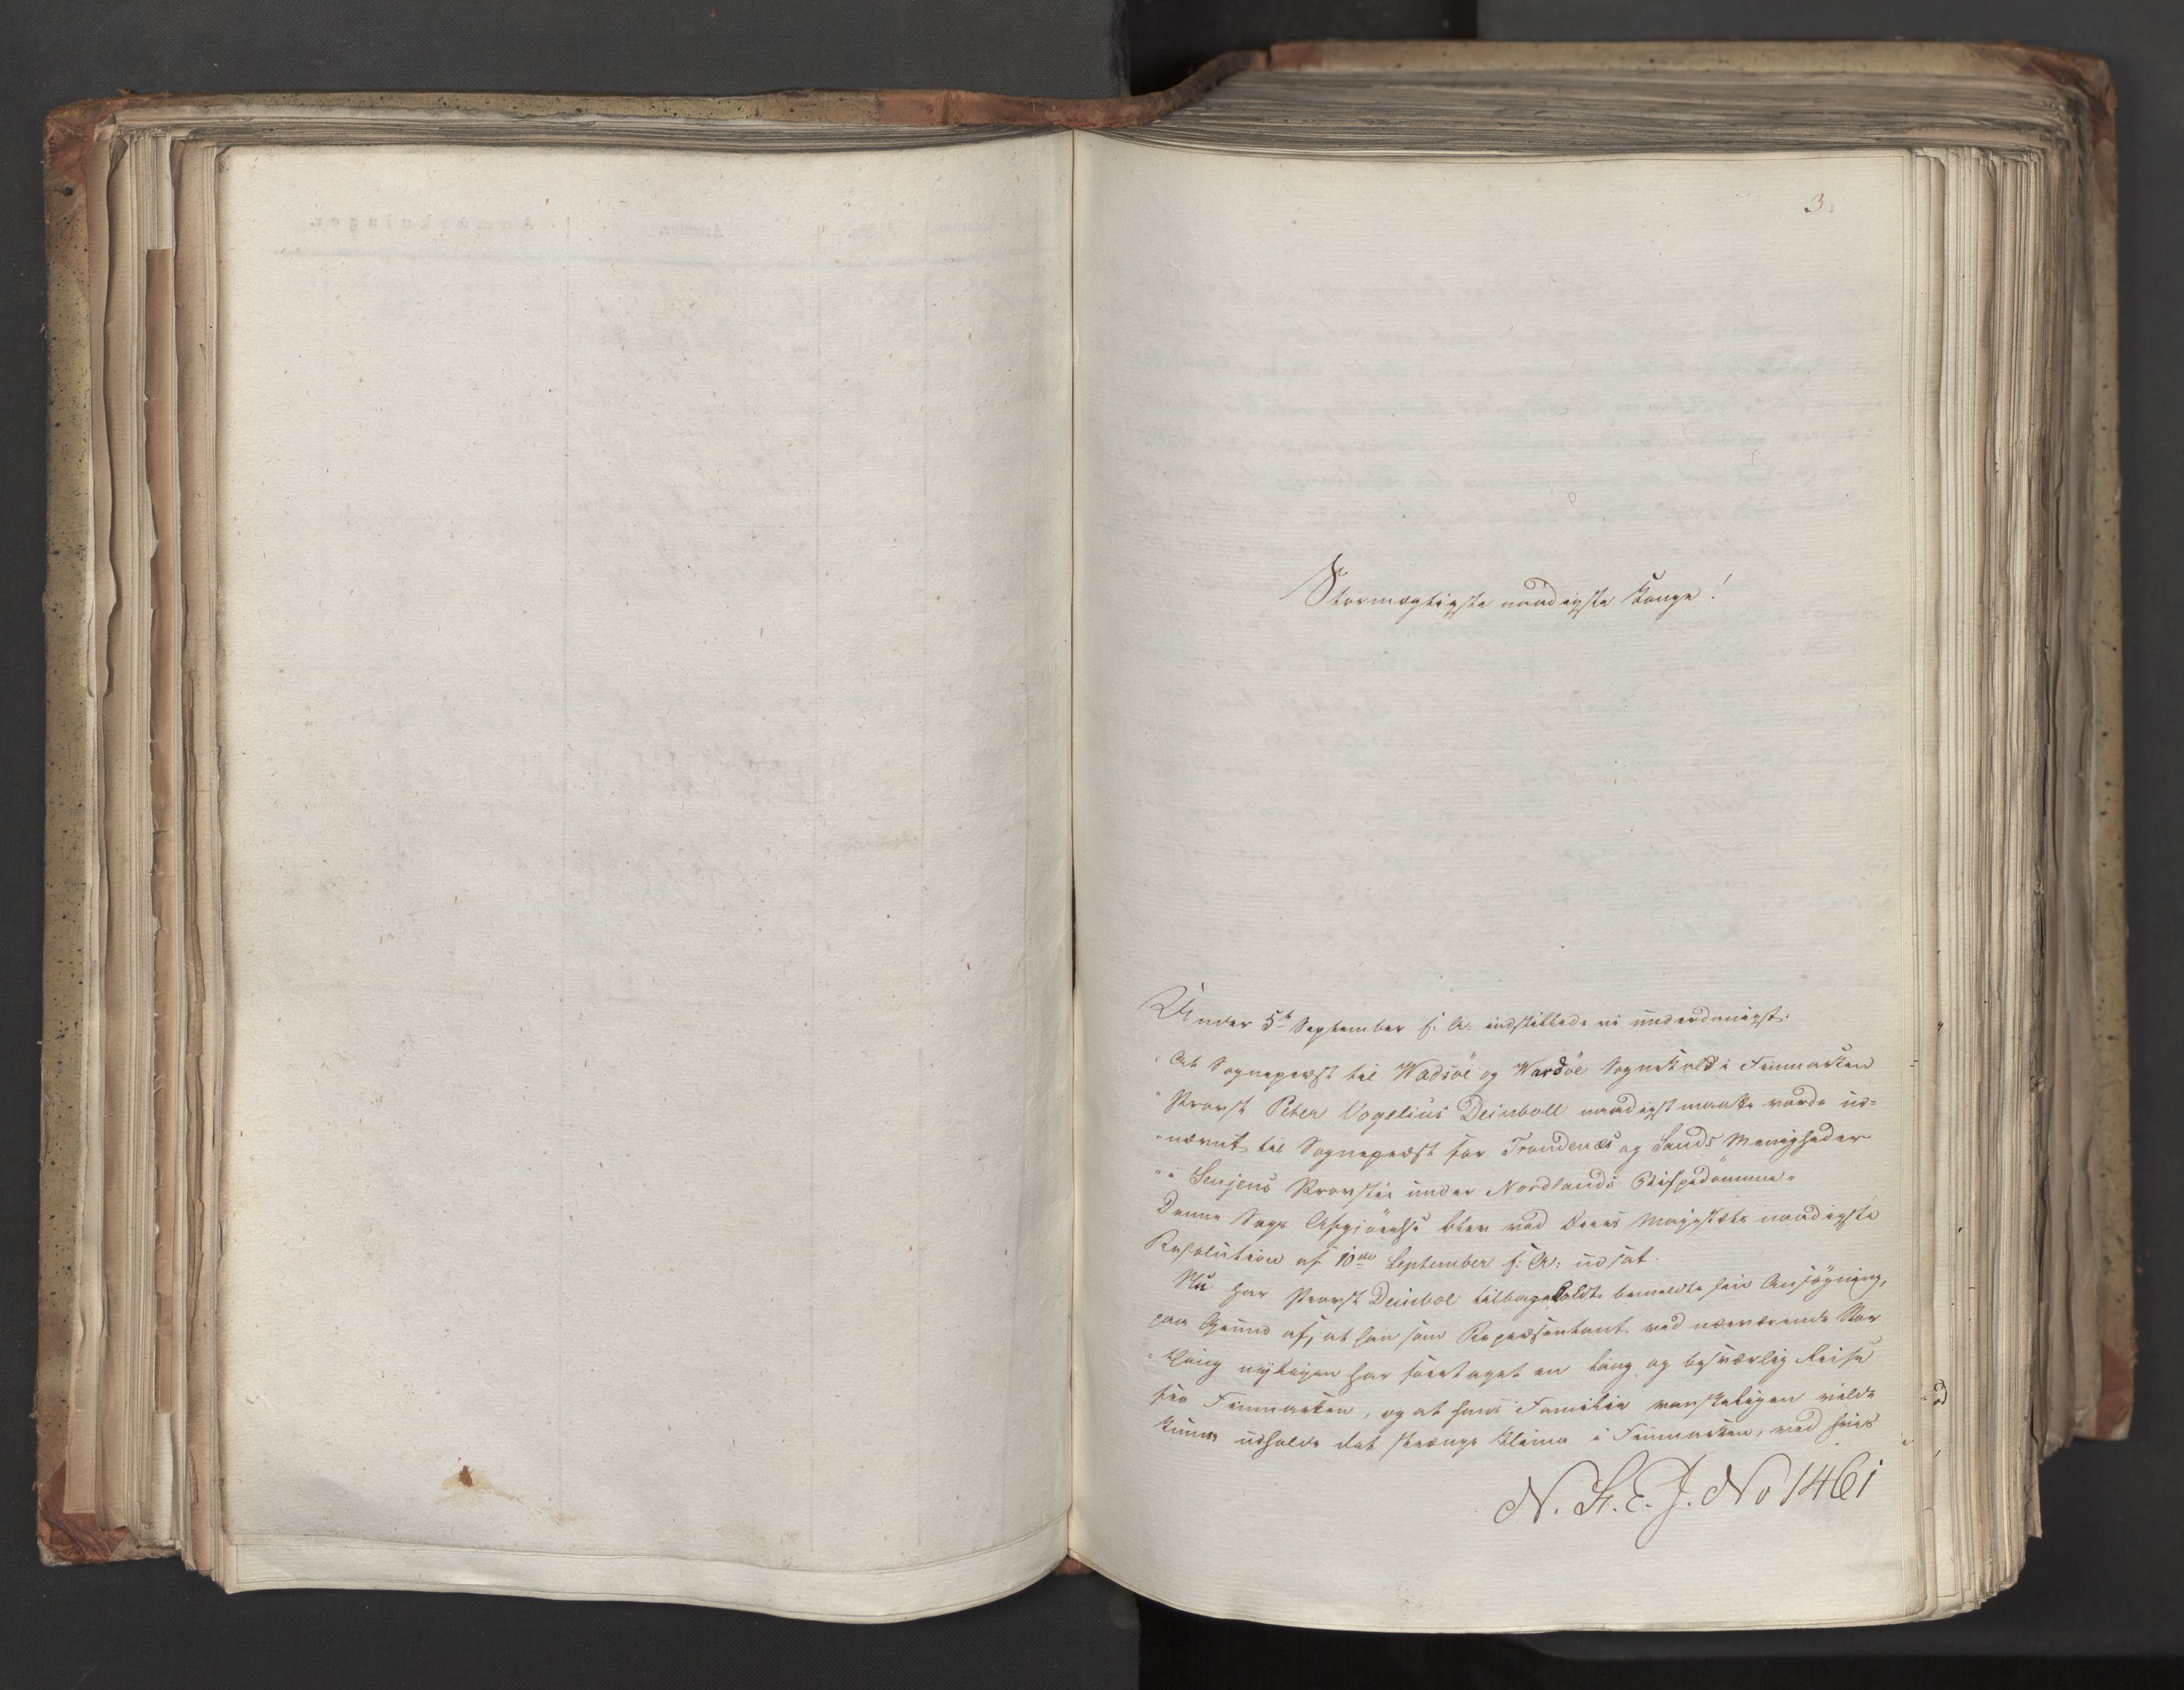 3.
Stormægtigste naadigste Konge!
Under 5te September f: A: indstillede vi underdanigst:
"At Sognepræst til Wadsöe og Wardöe Sognekald i Finmarken
"Provst Peter Vogelius Deinboll naadigst maatte vorde ud=
"nævnt til Sognepræst for Trondenæs og Sands Menigheder
"i Senjens Provstie under Nordlands Bispedömme"
Denne Sags Afgjörelse blev ved Deres Majestæts naadigste
Resolution af 10de September f: A: udsat.
Nu har Provst Deinbol tilbagekaldt bemeldte sin Ansögning,
paa Grund af, at han som Repræsentant ved nærværende Stor
=thing nyligen har foretaget en lang og besværlig Reise
fra Finmarken, og at hans Familie vanskeligen vilde
kunne udholde det strænge Klima i Finmarken, ved hvis
N. St. E. J. No 1461